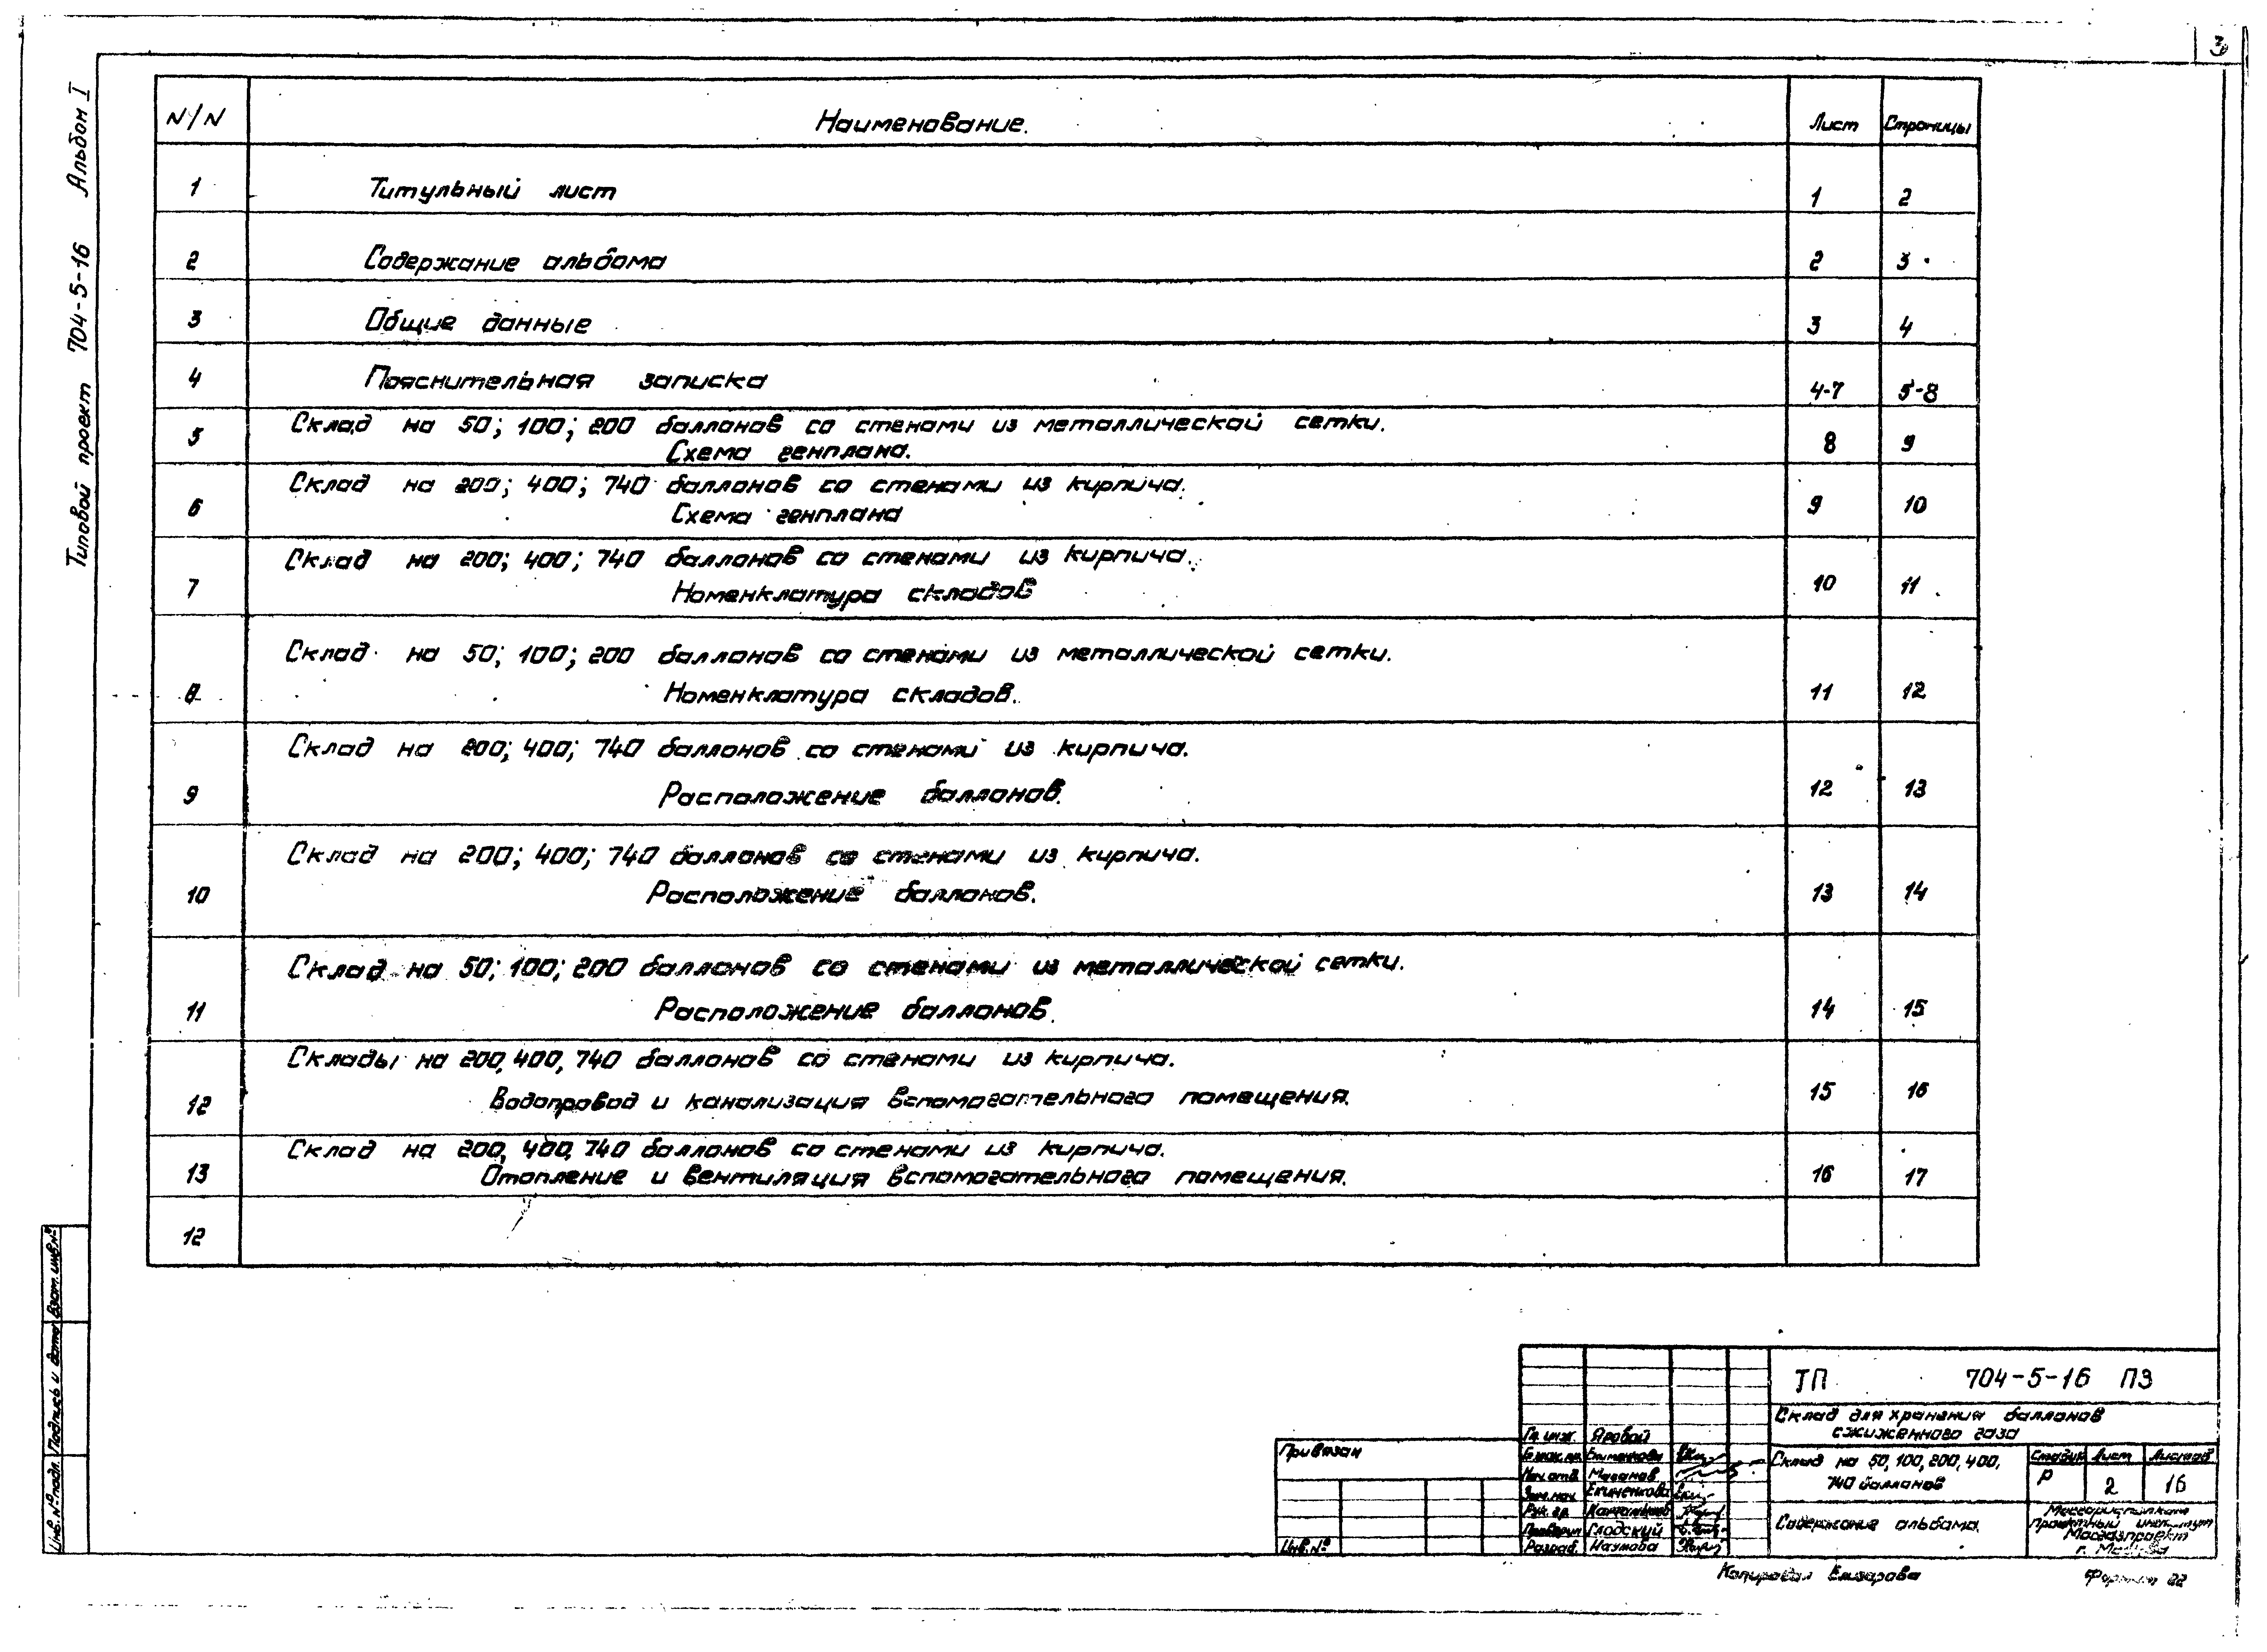 3
Типовой проект 704-5-16 Альбом I
N/N Наименование. Лист Страницы
1 Титульный лист 1 2
2 Содержание альбома 2 3
3 Общие данные 3 4
4 Пояснительная записка 4-7 5-8
5 Склад на 50; 100; 200 баллонов со стенами из металлической сетки. 8 9
Схема генплана.
6 Склад на 200; 400; 740 баллонов со стенами из кирпича. 9 10
Схема генплана
7 Склад на 200; 400; 740 баллонов со стенами из кирпича. 10 11
Номенклатура складов
8 Склад на 50; 100; 200 баллонов со стенами из металлической сетки. 11 12
Номенклатура складов.
9 Склад на 200; 400; 740 баллонов со стенами из кирпича. 12 13
Расположение баллонов.
10 Склад на 200; 400; 740 баллонов со стенами из кирпича. 13 14
Расположение баллонов.
11 Склад на 50; 100; 200 баллонов со стенами из металлической сетки. 14 15
Расположение баллонов.
12 Склады на 200, 400, 740 баллонов со стенами из кирпича. 15 16
Водопровод и канализация вспомогательного помещения.
13 Склад на 200, 400, 740 баллонов со стенами из кирпича. 16 17
Отопление и вентиляция вспомогательного помещения.
12
Инв. № подл. Подпись и дата Взам. инв. №
Привязан
Инв. №
Гл. инж. Яровой
Нач. отд.
Зам. нач. Екименкова
Рук. гр.
Проверил Глодский
Разраб. Наумова
ТП 704-5-16 ПЗ
Склад для хранения баллонов
сжиженного газа
Склад на 50, 100, 200, 400,
740 баллонов
Стадия Лист Листов
Р 2 16
Содержание альбома.
Мосгорисполком
проектный институт
Мосгазпроект
г. Москва
Копировал Елизарова
Формат 22